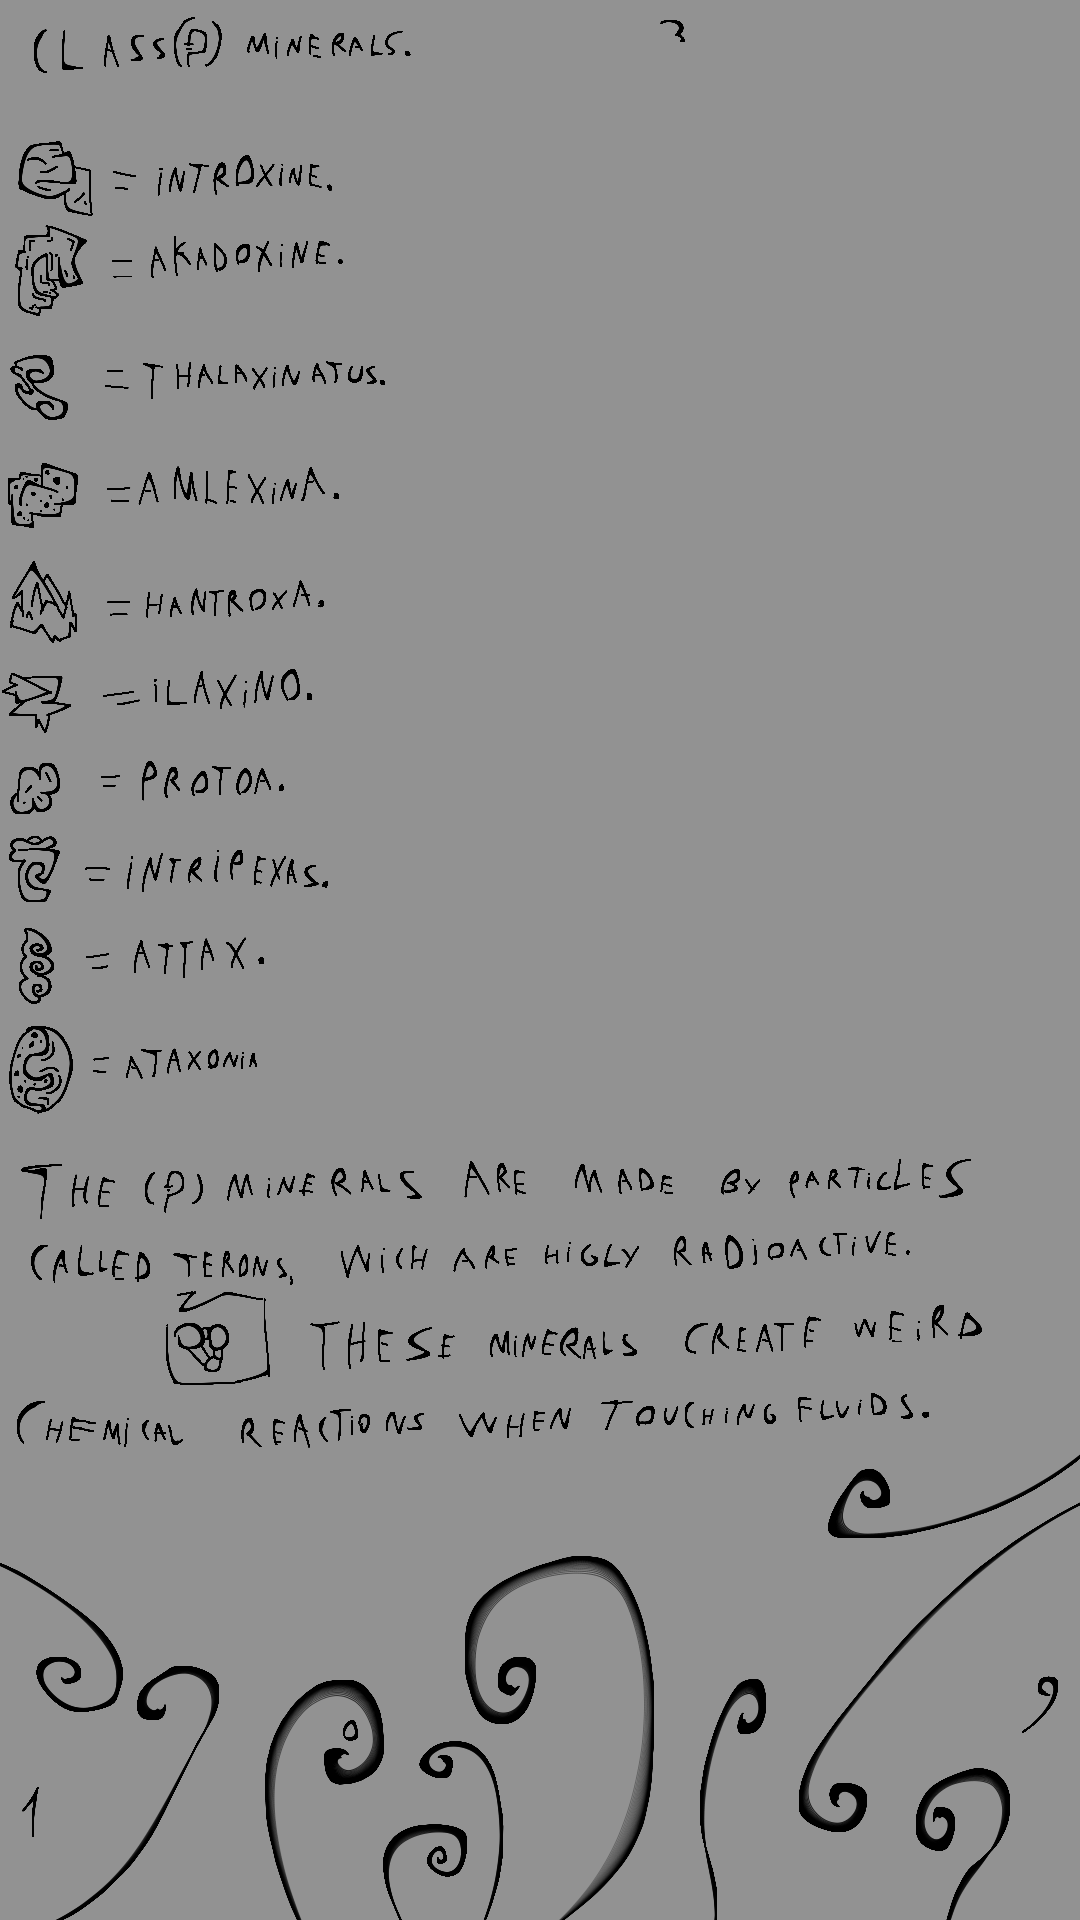 CLASS(P) MINERALS.
= INTROXINE.
= AKADOXINE.
= THALAXINATUS.
= AMLEXINA.
= HANTROXA.
= ILAXINO.
= PROTOA.
= INTRIPEXAS.
= ATTAX.
= ATAXONIA
THE (P) MINERALS ARE MADE BY PARTICLES
CALLED TERONS, WICH ARE HIGLY RADJOACTIVE.
THESE MINERALS CREATE WEIRD
CHEMICAL REACTIONS WHEN TOUCHING FLUIDS.
1